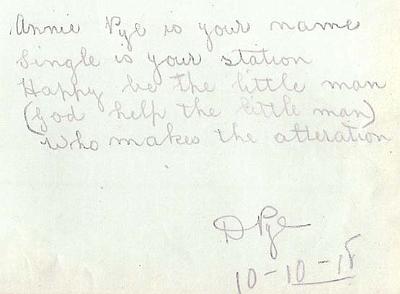 Annie Pye is your name
Single is your station
Happy be the little man
(God help the little man)
who makes the alteration
D Pye
10-10-18